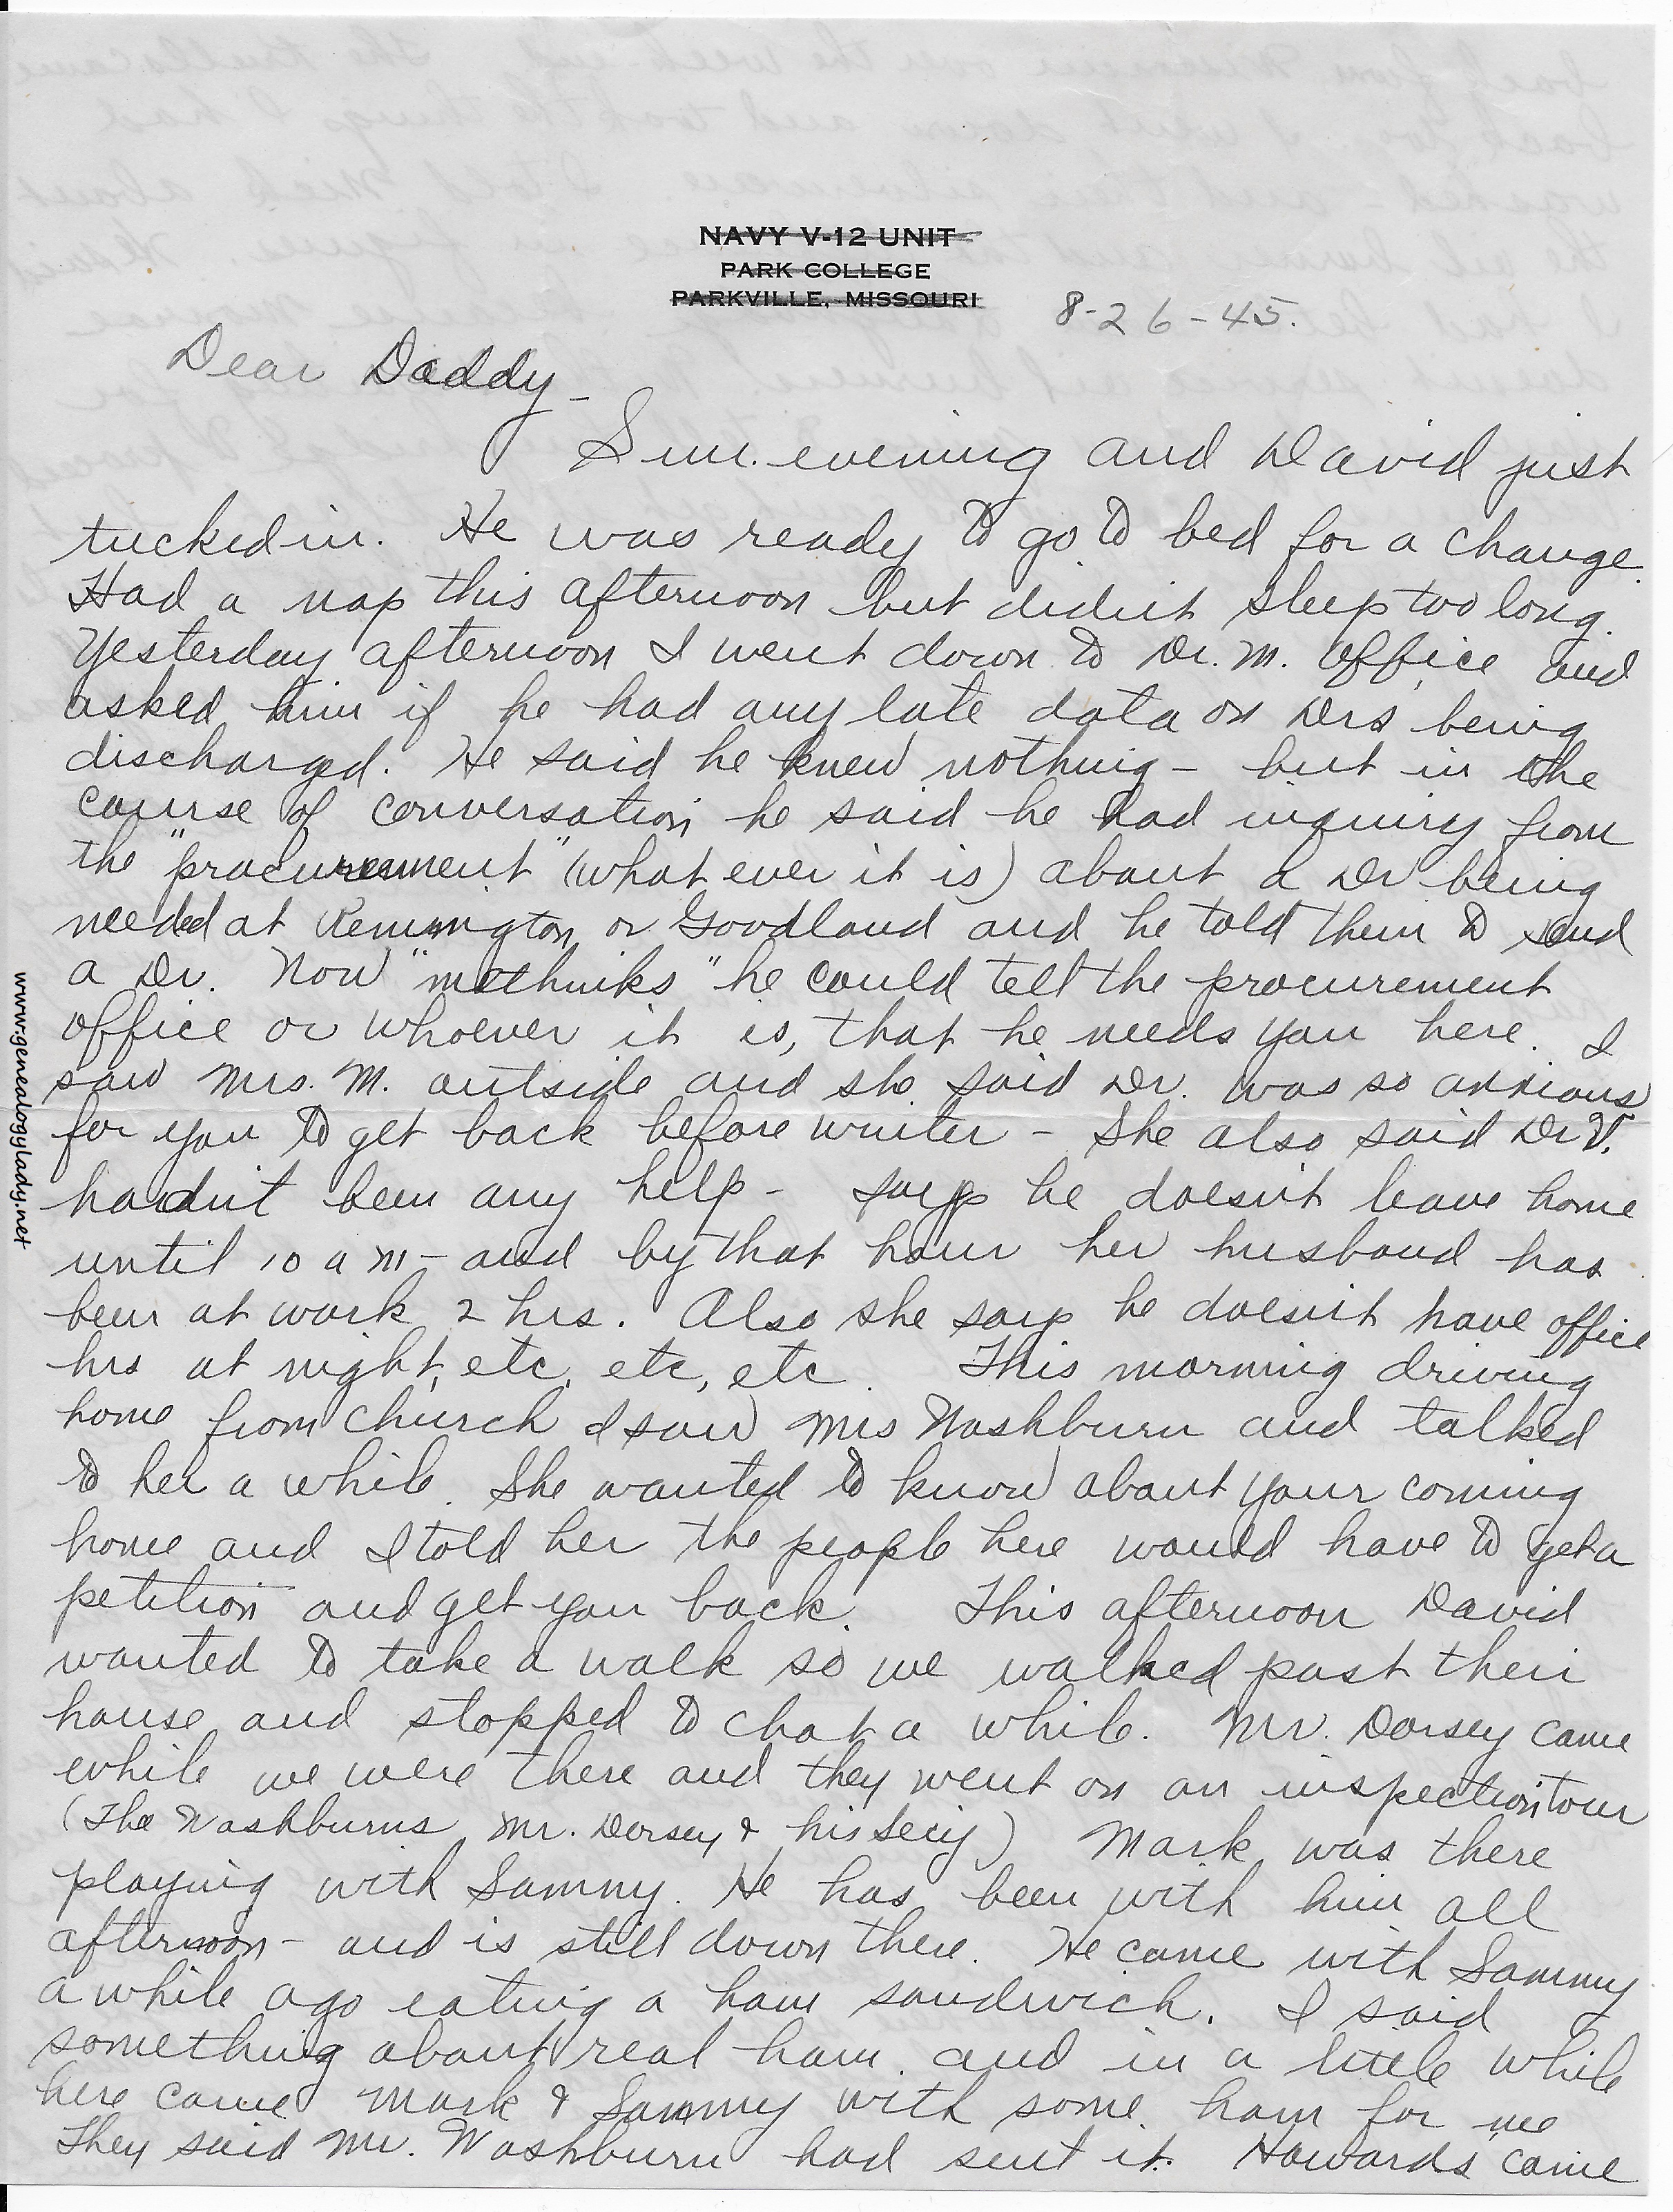 NAVY V-12 UNIT
PARK COLLEGE
PARKVILLE, MISSOURI
8-26-45.
Dear Daddy -
Sun. evening and David just
tucked in. He was ready to go to bed for a change.
Had a nap this afternoon but didn't sleep too long.
Yesterday afternoon I went down to Dr. M. office and
asked him if he had any late data on Drs being
discharged. He said he knew nothing - but in the
course of conversation he said he had inquiry from
the "procurement" (what ever it is) about a Dr being
needed at Remington or Goodland and he told them to send
a Dr. Now "methinks" he could tell the procurement
office or whoever it is, that he needs you here. I
saw Mrs. M. outside and she said Dr. was so anxious
for you to get back before winter - She also said Dr V.
hadn't been any help - says he doesn't leave home
until 10 a m - and by that hour her husband has
been at work 2 hrs. Also she says he doesn't have office
hrs at night, etc, etc, etc. This morning driving
home from church I saw Mrs Washburn and talked
to her a while. She wanted to know about your coming
home and I told her the people here would have to get a
petition and get you back. This afternoon David
wanted to take a walk so we walked past their
house and stopped to chat a while. Mr. Dorsey came
while we were there and they went on an inspection tour
(The Washburns, Mr. Dorsey & his secy) Mark was there
playing with Sammy. He has been with him all
afternoon - and is still down there. He came with Sammy
a while ago eating a ham sandwich. I said
something about real ham and in a little while
here came Mark & Sammy with some ham for me
They said Mr. Washburn had sent it. Howards came
www.genealogylady.net